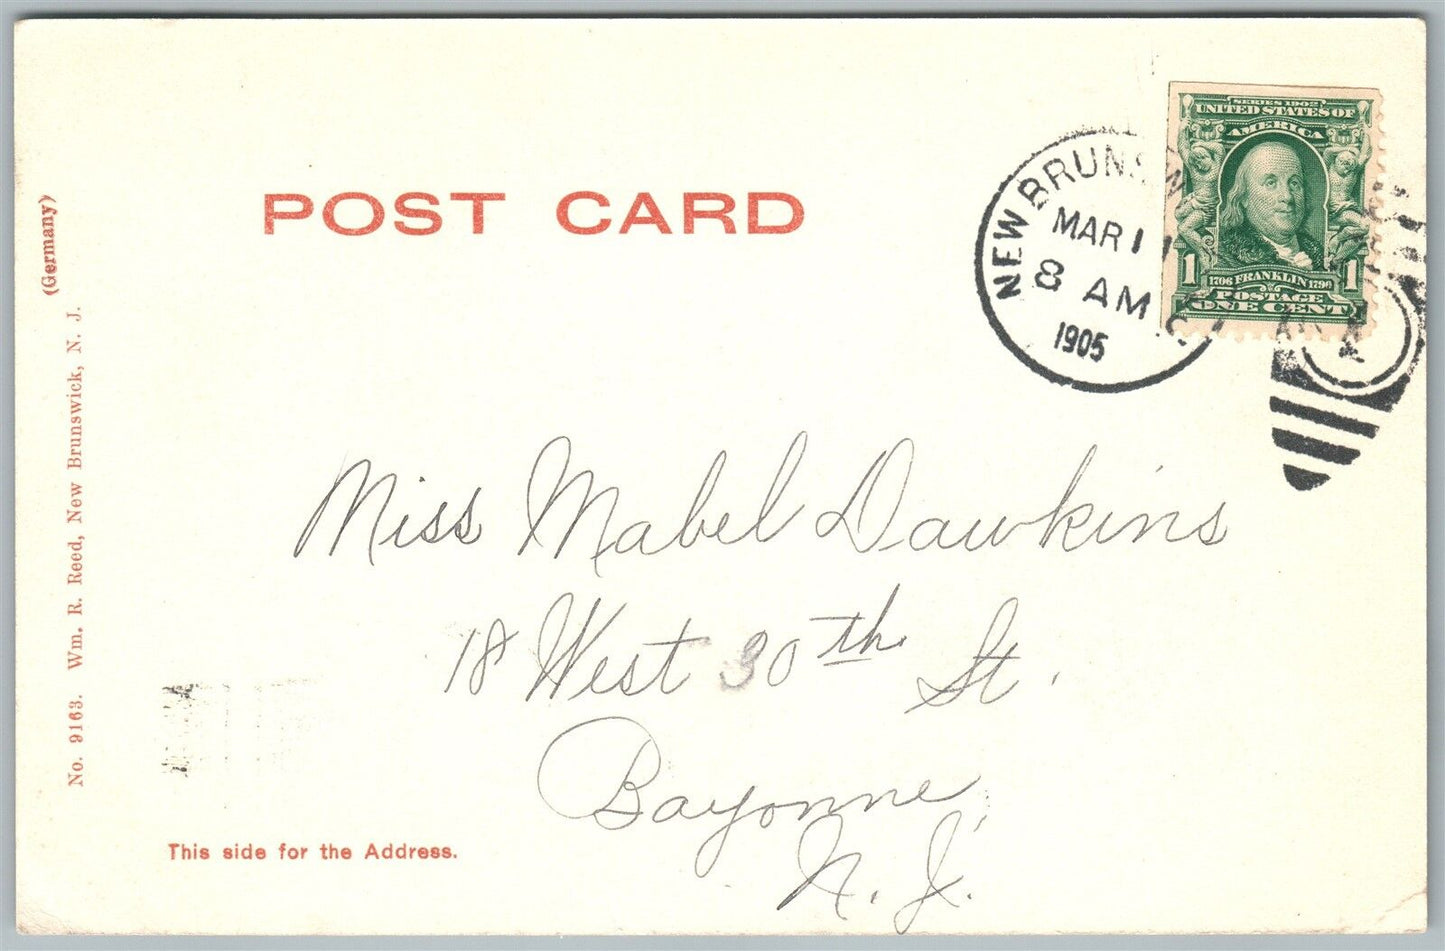 POST CARD
SERIES 1902
UNITED STATES OF
AMERICA
1706 FRANKLIN 1790
1 1
POSTAGE
ONE CENT
NEW BRUNSW
MAR 11
8 AM
1905
Miss Mabel Dawkins
18 West 30th St.
Bayonne,
N. J.
This side for the Address.
No. 9163. Wm. R. Reed, New Brunswick, N. J.
(Germany)